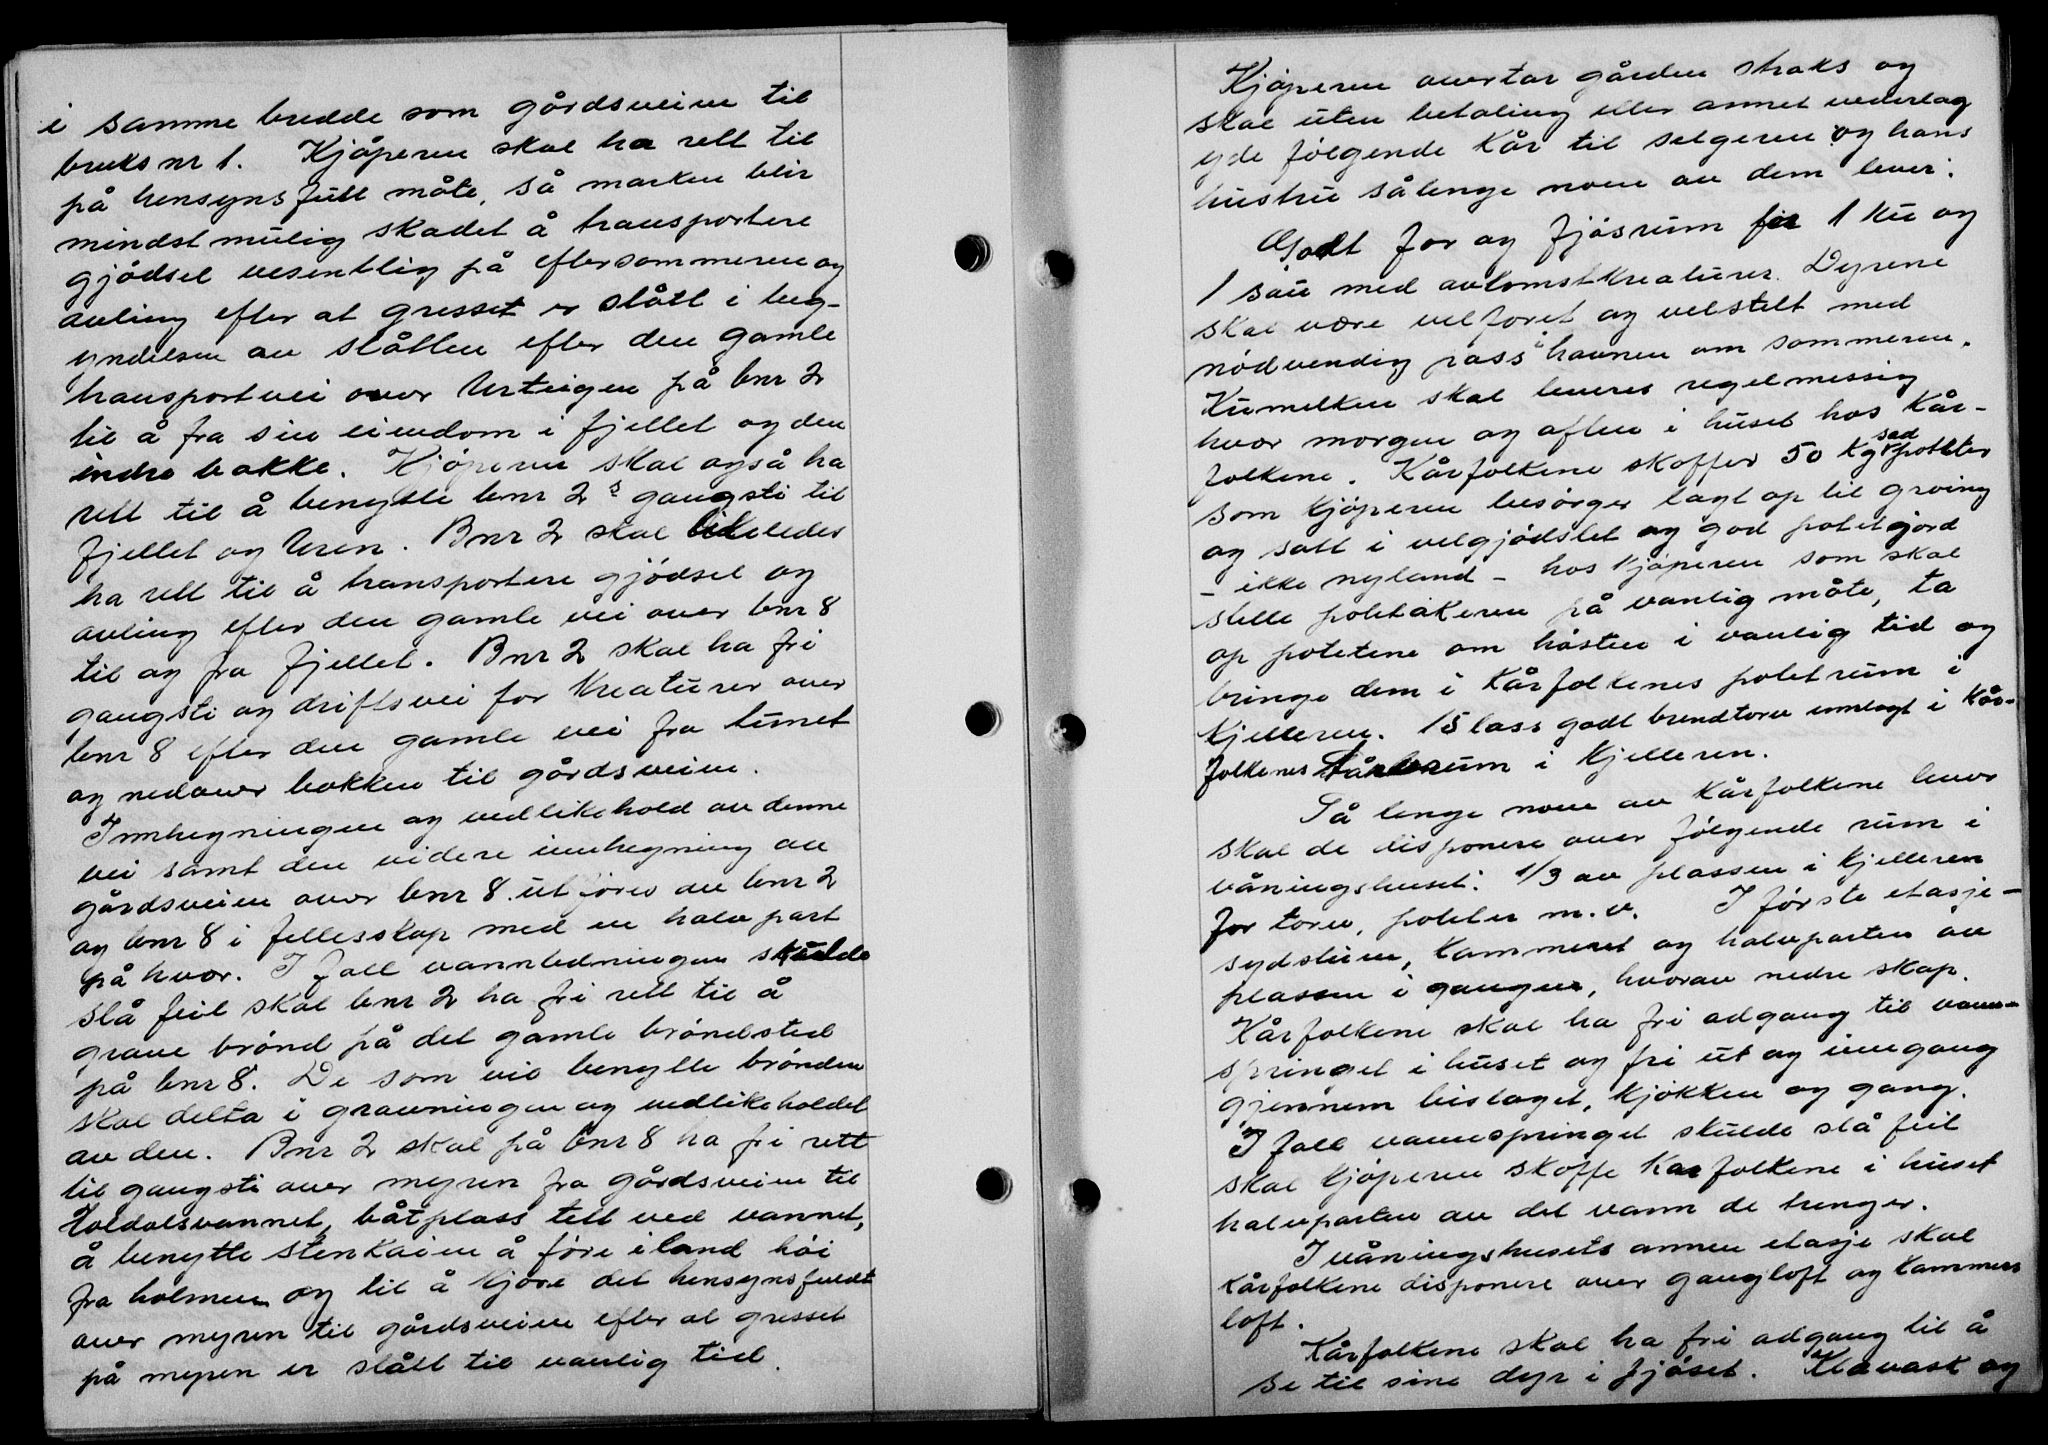 i samme bredde som gårdsveien til
bruks nr 1. Kjøperen skal ha rett til
på hensynsfull måte, så marken blir
mindst mulig skadet å transportere
gjødsel vesentlig på eftersommeren og
avling efter at gresset er slått i beg-
yndelsen av slåtten efter den gamle
transportvei over Urteigen på bnr 2
til å fra sin eiendom i fjellet og den
indre bakke. Kjøperen skal også ha
rett til å benytte bnr 2s gangsti til
fjellet og Uren. Bnr 2 skal likeledes
ha rett til å transportere gjødsel og
avling efter den gamle vei over bnr 8
til og fra fjellet. Bnr 2 skal ha fri
gangsti og driftsvei for kreaturer over
bnr 8 efter den gamle vei fra tunet
og nedover bakken til gårdsveien.
Innhegningen og vedlikehold av denne
vei samt den videre innhegning av
gårdsveien over bnr 8 utføres av bnr 2
og bnr 8 i fellesskap med en halv part
på hver. I fall vannledningen skulde
slå feil skal bnr 2 ha fri rett til å
grave brønd på det gamle brøndsted
på bnr 8. De som vil benytte brønden
skal delta i gravningen og vedlikeholdet
av den. Bnr 2 skal på bnr 8 ha fri rett
til gangsti over myren fra gårdsveien til
Holdalsvannet, båtplass tett ved vannet,
å benytte stenkaien å føre iland høi
fra holmen og til å kjøre det hensynsfuldt
over myren til gårdsveien efter at gresset
på myren er slått til vanlig tid.
Kjøperen overtar gården straks og
skal uten betaling eller annet vederlag
yde følgende kår til selgeren og hans
hustru sålenge noen av dem lever:
Godt for og fjøsrum for 1 ku og
1 sau med avkomstkreaturer. Dyrene
skal være velforet og velstelt med
nødvendig pass i havnen om sommeren.
Kumelken skal leveres regelmessig
hver morgen og aften i huset hos kår-
folkene. Kårfolkene skaffer 50 kg sedpoteter
som kjøperen besørger lagt op til groing
og satt i velgjødslet og god potetgjord
- ikke nyland - hos kjøperen som skal
stelle potetåkeren på vanlig måte, ta
op potetene om høsten i vanlig tid og
bringe dem i kårfolkenes potetrum i
kjelleren. 15 lass godt brendtorv innlagt i kår-
folkenes rum i kjelleren.
Så lenge noen av kårfolkene lever
skal de disponere over følgende rum i
våningshuset: 1/3 av plassen i kjelleren
for torv, poteter m.v. I første etasje -
sydstuen, kammeret og halvparten av
plassen i gangen, hvorav nedre skap.
Kårfolkene skal ha fri adgang til vann-
springet i huset og fri ut og inngang
gjennem bislaget, kjøkken og gang.
I fall vannspringet skulde slå feil
skal kjøperen skaffe karfolkene i huset
halvparten av det vann de trenger.
I våningshusets annen etasje skal
kårfolkene disponere over gangloft og kammers
loft.
Kårfolkene skal ha fri adgang til å
se til sine dyr i fjøset. Klævask og